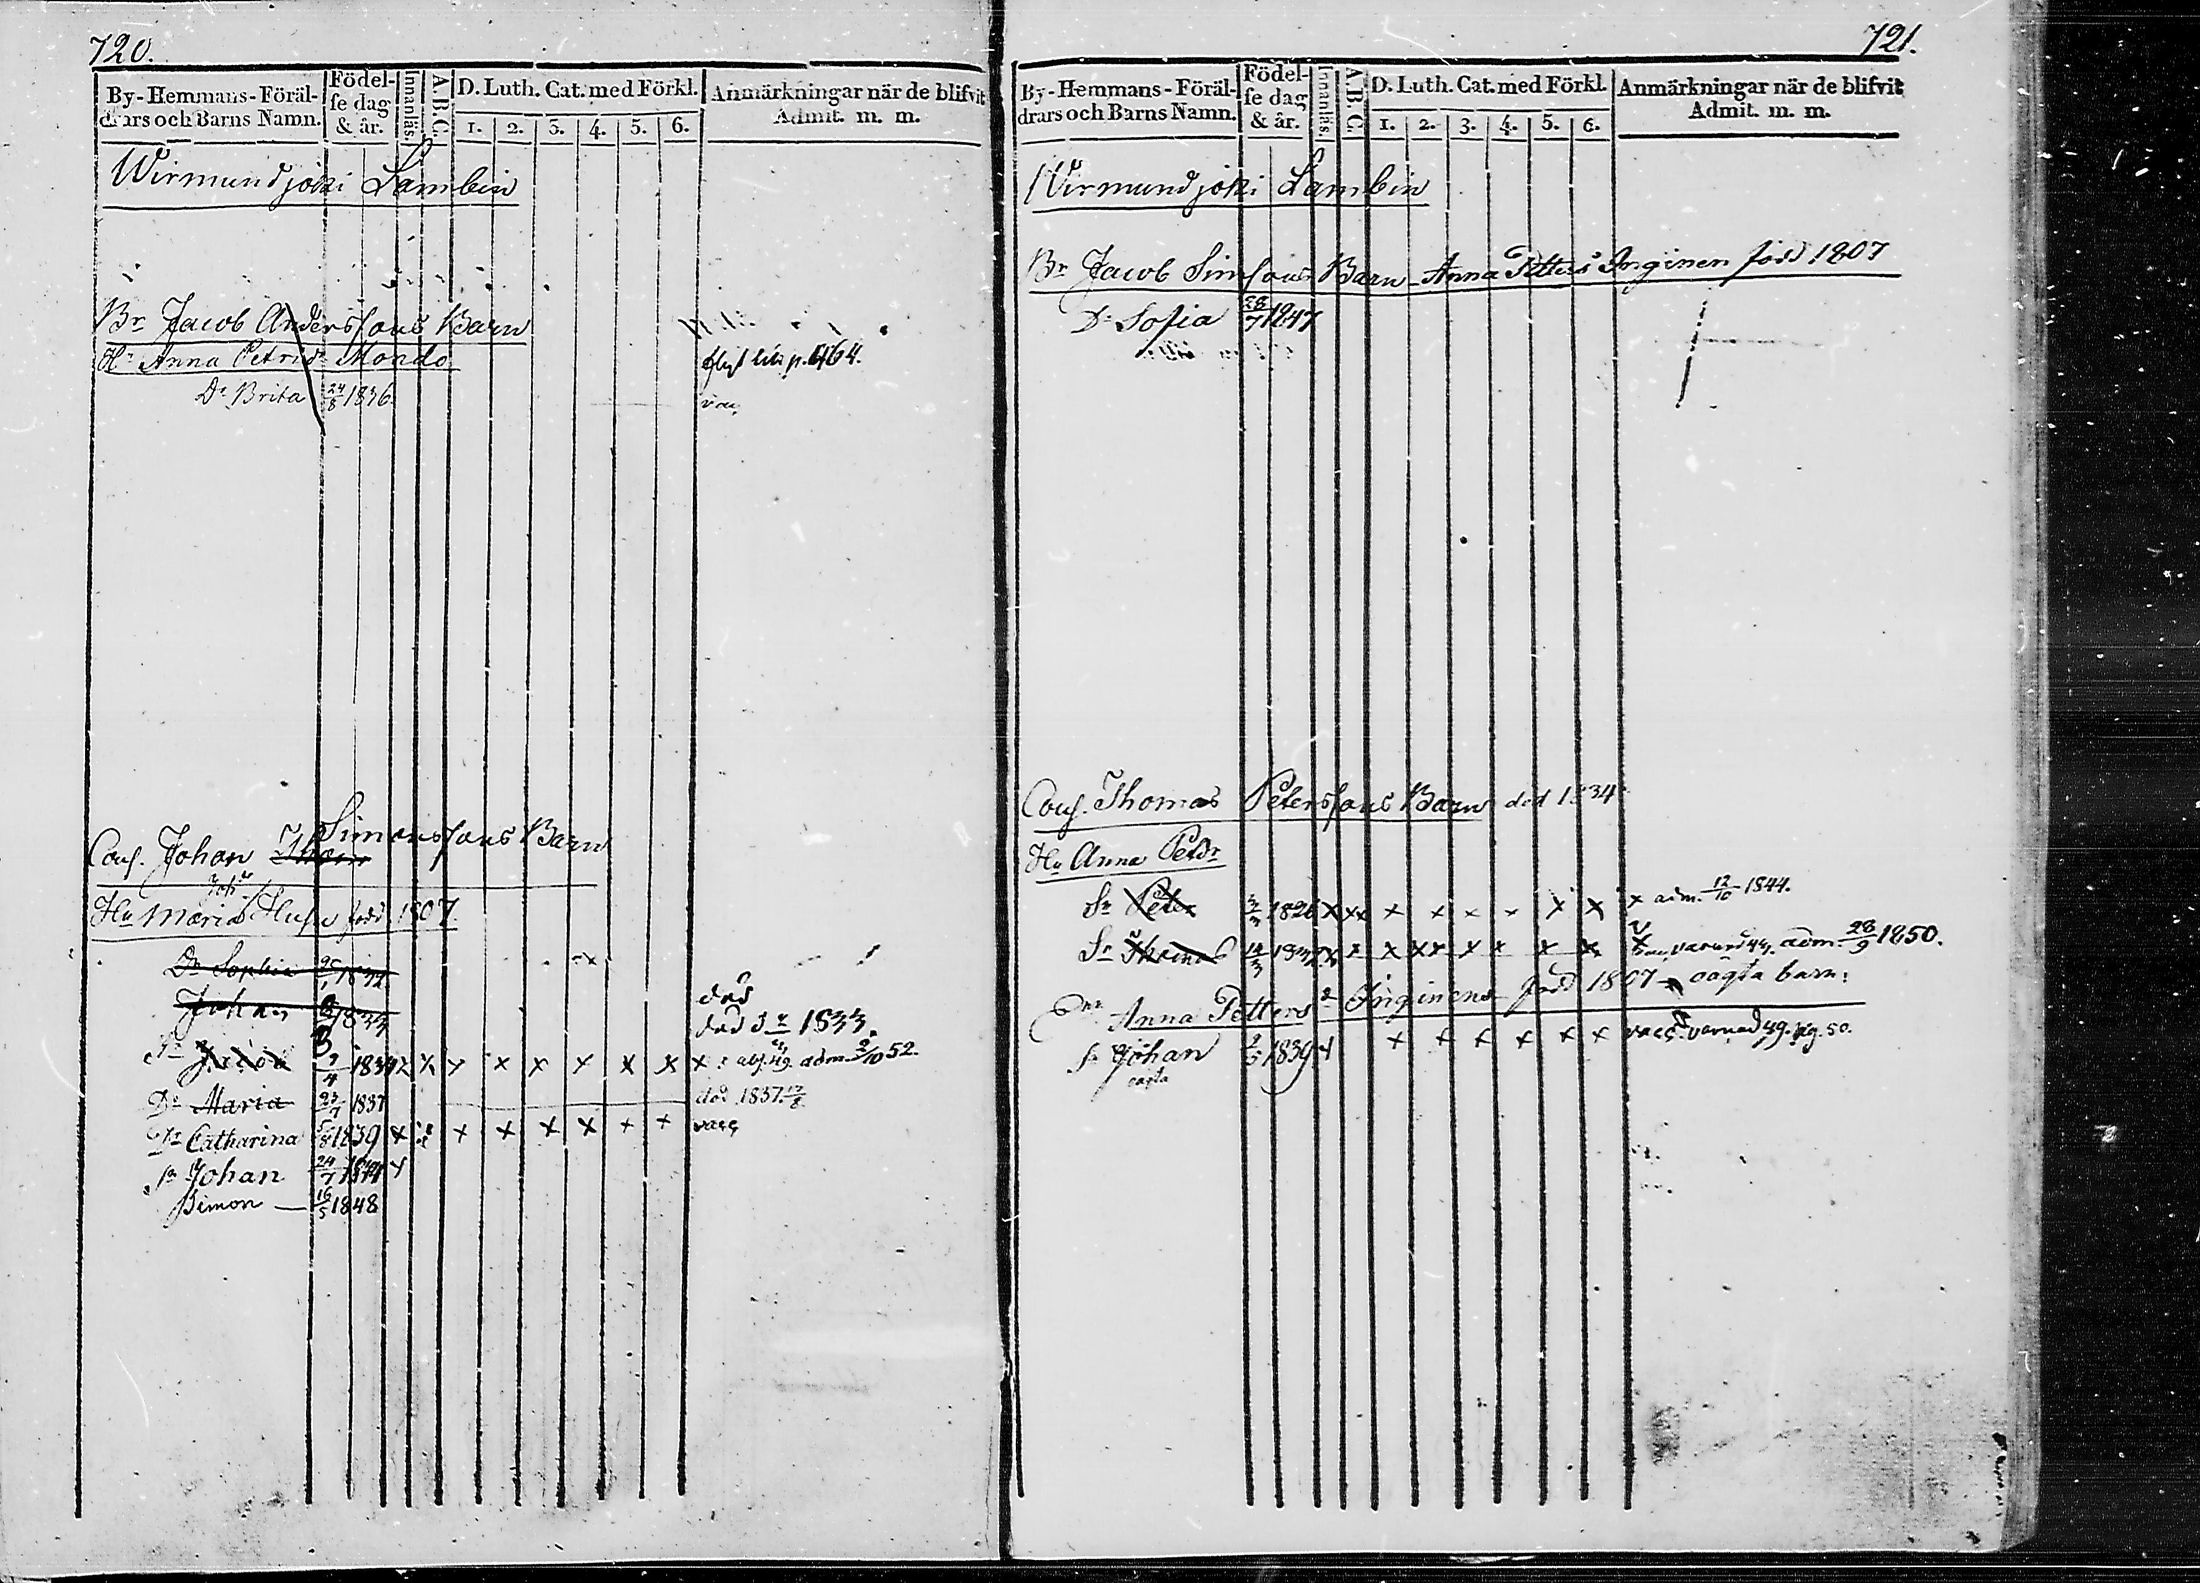 720.
By- Hemmans- Föräl-
drars och Barns Namn.
Födel-
se dag
& år.
Innanläs.
A.B.C.
D. Luth. Cat. med Förkl.
1. 2. 3. 4. 5. 6.
Anmärkningar när de blifvit
Admit. m. m.
Wirmundjoki Lambin
Br Jacob Anderssons Barn
Hu Anna Petrid Mondo
flyt till p. 464.
Dr Brita 24/8 1836 vac
Couf. Johan Thom Simonssons Barn
Hu Maria född 1807.
Dr Sophia 1832
död
Johan 1833 död 1833.
Sr Jacob 9/4 1834 x x x x x x x x x adm. 3/10 52.
Dr Maria 23/7 1837 död 1837.
Dr Catharina 5/8 1839 x x x x x x x vacc
Sr Johan 24/7 1844
Simon — 16/5 1848
721.
By- Hemmans- Föräl-
drars och Barns Namn.
Födel-
se dag
& år.
Innanläs.
A.B.C.
D. Luth. Cat. med Förkl.
1. 2. 3. 4. 5. 6.
Anmärkningar när de blifvit
Admit. m. m.
Wirmundjoki Lambin
Br Jacob Simsons Barn Anna Petters Inginen född 1807
Dr Sofia 28/7 1847
Couf. Thomas Peterssons Barn död 1834
Hu Anna Petdr
Sr Peter 1826 x xx x x x x x x x adm. 12/10 1844.
Sr Thomas 1832 x x x x x x x adm 28/9 1850.
Anna Petters Inginens född 1807 oägta barn:
Sr Johan 2/5 1839 x x x x x x vacc varnad 49. pg. 50.
oägta